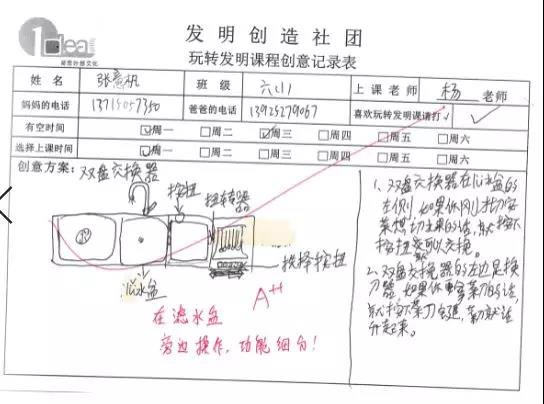 1 Idea
发明创造社团
玩转发明课程创意记录表
姓名 张 班级 六(1) 上课老师 杨 老师
妈妈的电话 13715057350 爸爸的电话 13925279067 喜欢玩转发明课请打√ ✓
有空时间 ☑周一 □周二 ☑周三 □周四 □周五 □周六
选择上课时间 ☑周一 □周二 □周三 □周四 □周五 □周六
创意方案：双盘交换器
按扭 扭转器
选择按扭
水盆
A++
在滤水盆
旁边操作，功能细分！
1、双盘交换器在 水盆的
左侧，如果你刚 切完
菜想切 的话，就按下
按扭就可以交换。
2、双盘交换器的左边是换
刀器，如果你要拿菜刀的话，
就按下菜刀 ，菜刀就
升起来。